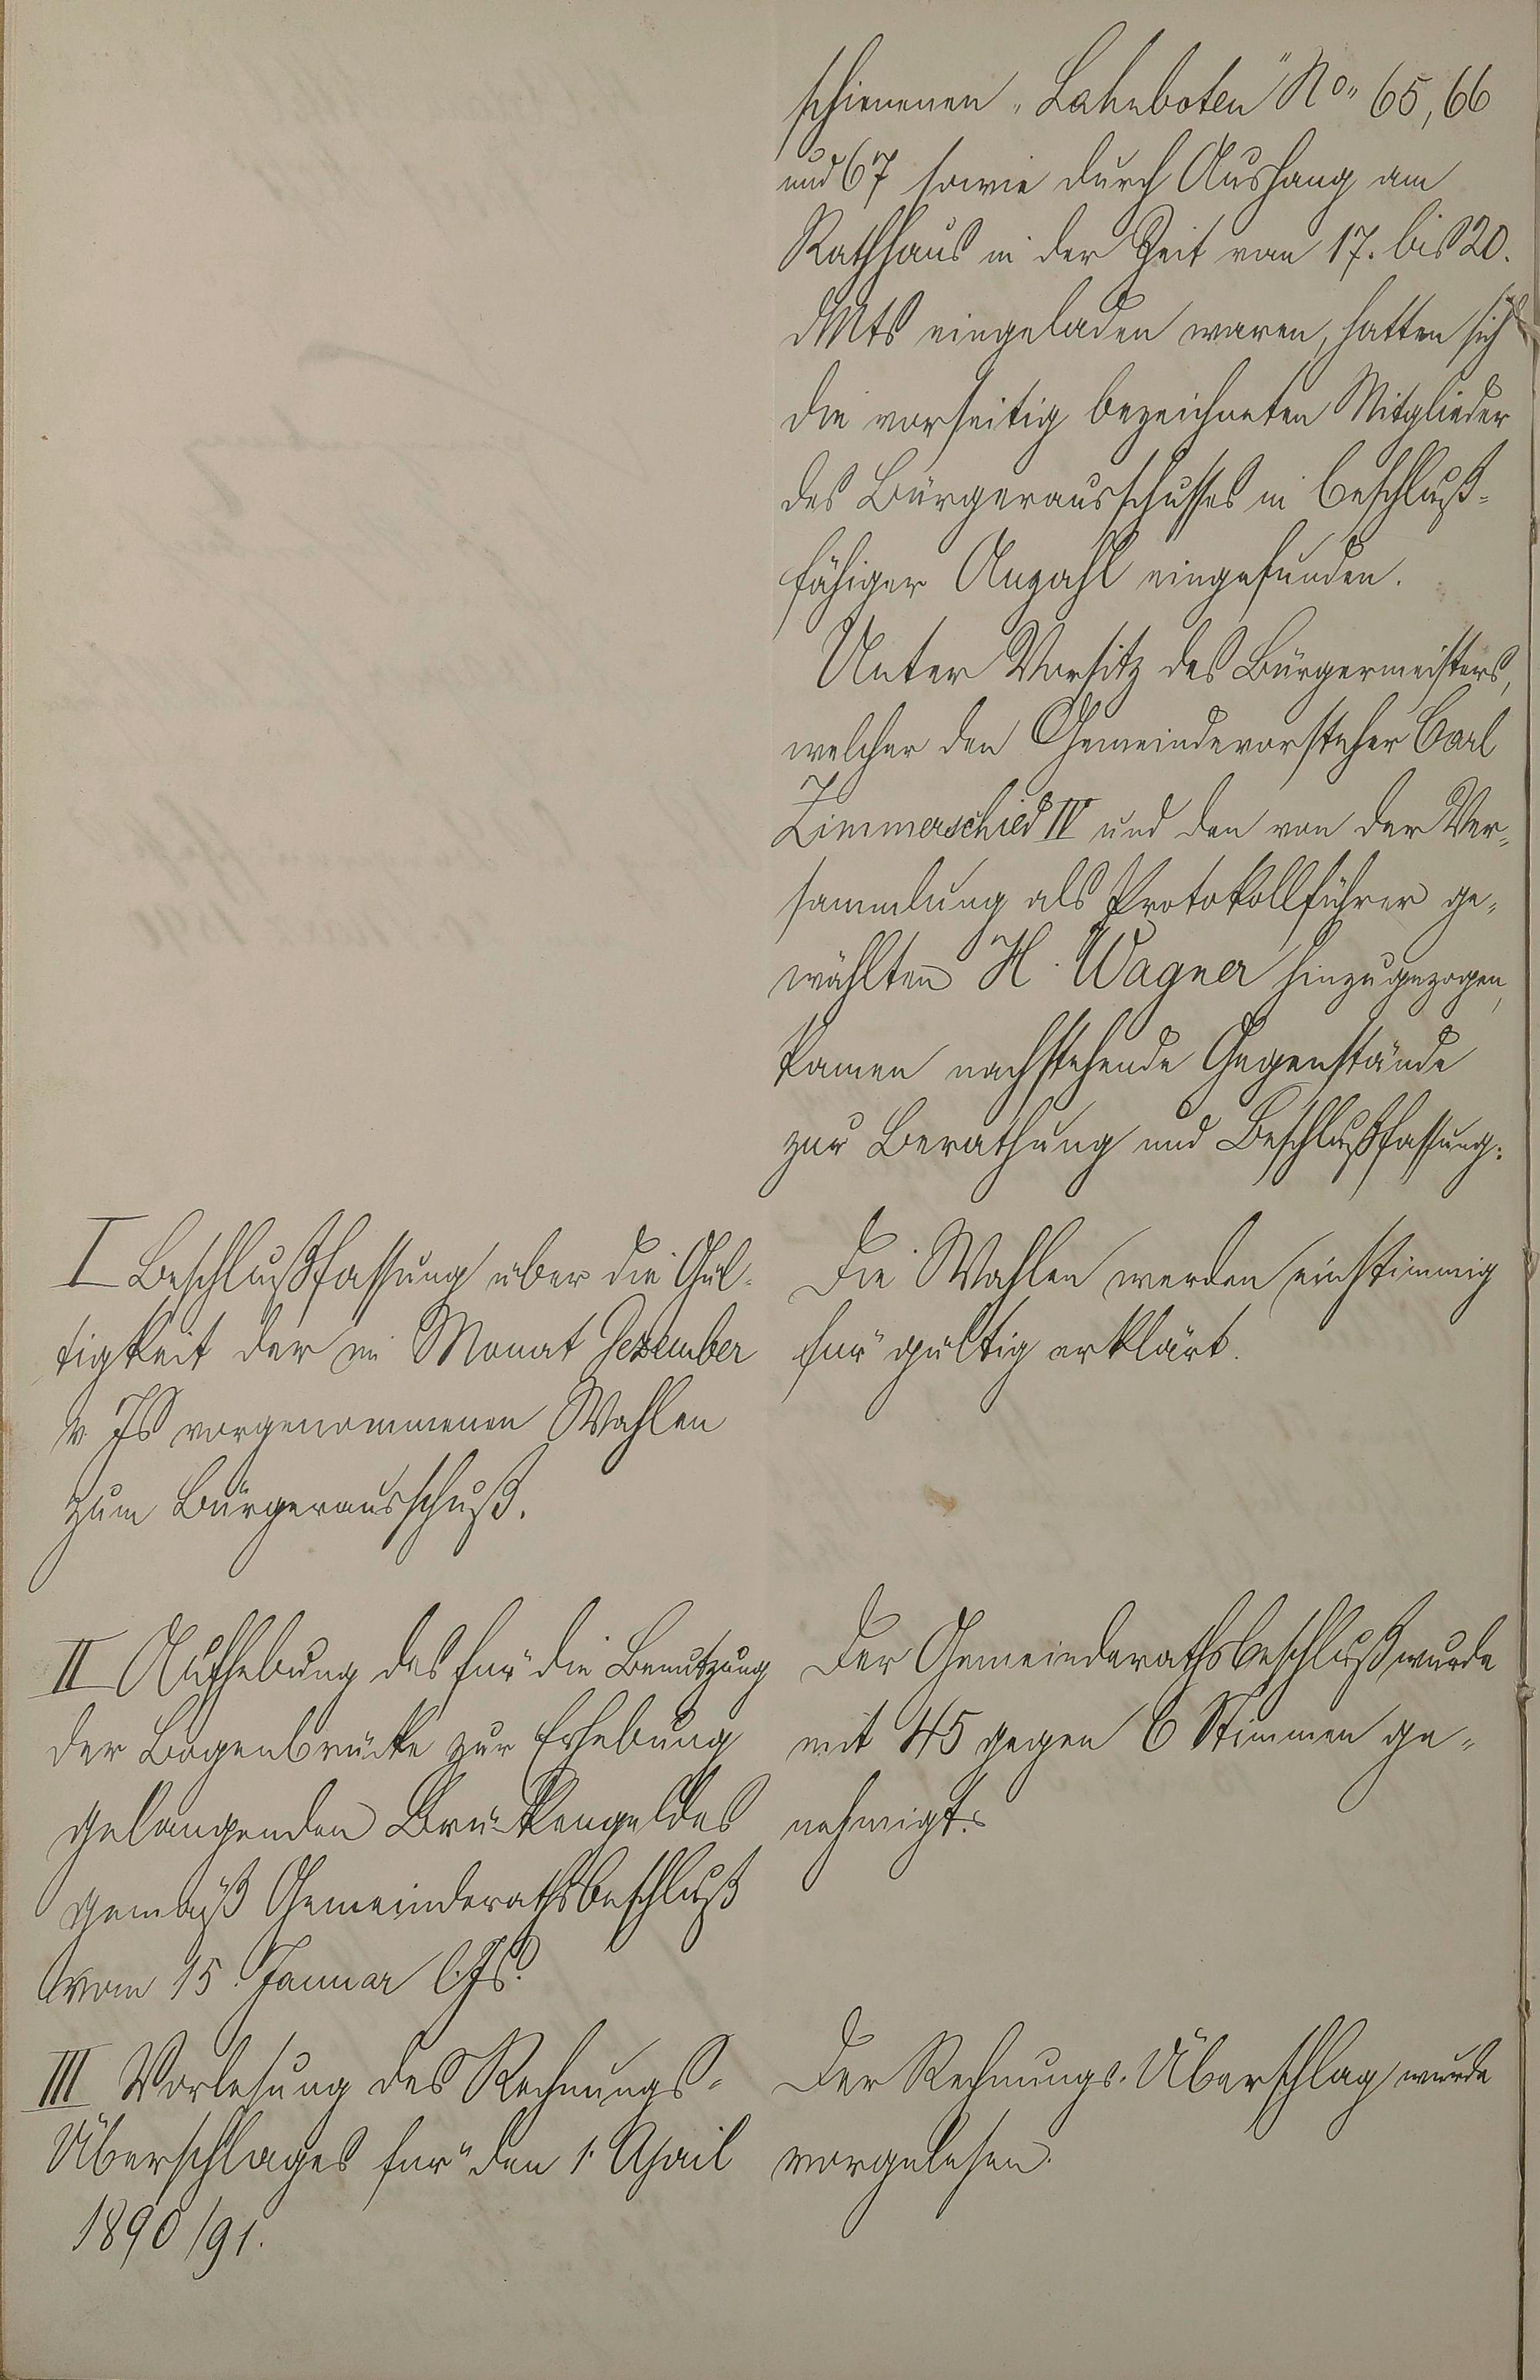 schienenen „Lahnboten" No. 65, 66
und 67 sowie durch Aushang am
Rathhaus in der Zeit vom 17. bis 20.
dMts eingeladen waren, hatten sich
die vorseitig bezeichneten Mitglieder
des Bürgerausschusses in beschluß-
fähiger Anzahl eingefunden.
Unter Vorsitz des Bürgermeisters,
welcher den Gemeindevorsteher Carl
Zimmerschied IV und den von der Ver-
sammlung als Protokollführer ge-
wählten H. Wagner hinzugezogen,
kamen nachstehende Gegenstände
zur Berathung und Beschlußfassung:
I Beschlußfassung über die Gül-
tigkeit der im Monat Dezember
v. Js vorgenommenen Wahlen
zum Bürgerausschuß.
Die Wahlen werden einstimmig
für gültig erklärt.
II Aufhebung des für die Benutzung
der Bogenbrücke zur Erhebung
gelangenden Brückengeldes
gemäß Gemeinderathsbeschluß
vom 15. Januar l. Js.
Der Gemeinderathsbeschluß wurde
mit 45 gegen 6 Stimmen ge-
nehmigt.
III Vorlesung des Rechnungs-
Überschlages für den 1. April
1890/91.
Der Rechnungs-Überschlag wurde
vorgelesen.